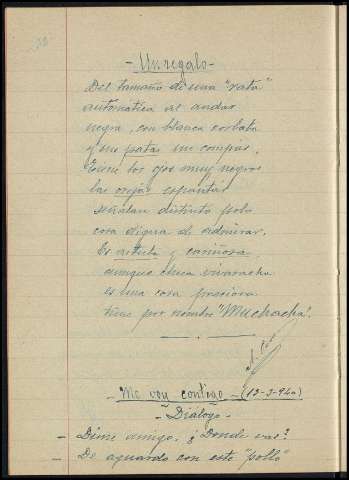 - Un regalo -
Del tamaño de una "rata"
automatica al andar
negra, con blanca corbata
y sus patas un compás.
Tiene los ojos muy negros
las orejas espantás
señalan distinto polo
cosa digna de admirar.
Es astuta y cariñosa,
aunque chica vivaracha
es una cosa preciosa
tiene por nombre "Muchacha".
- Me voy contigo - (13-3-940)
- Diálogo -
- Dime amigo, ¿Donde vas?
- De acuerdo con este "pollo"